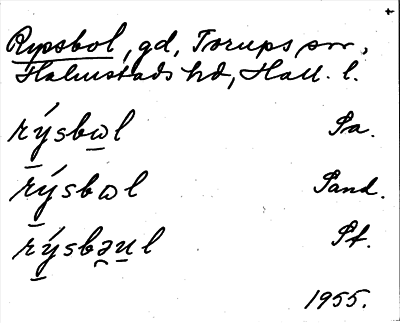 Rypsbol, gd, Torups sn,
Halmstads hd, Hall. l.
rýsbɷl Pa.
rýsbɷl Pand.
rýsbəul Pf.
1955.